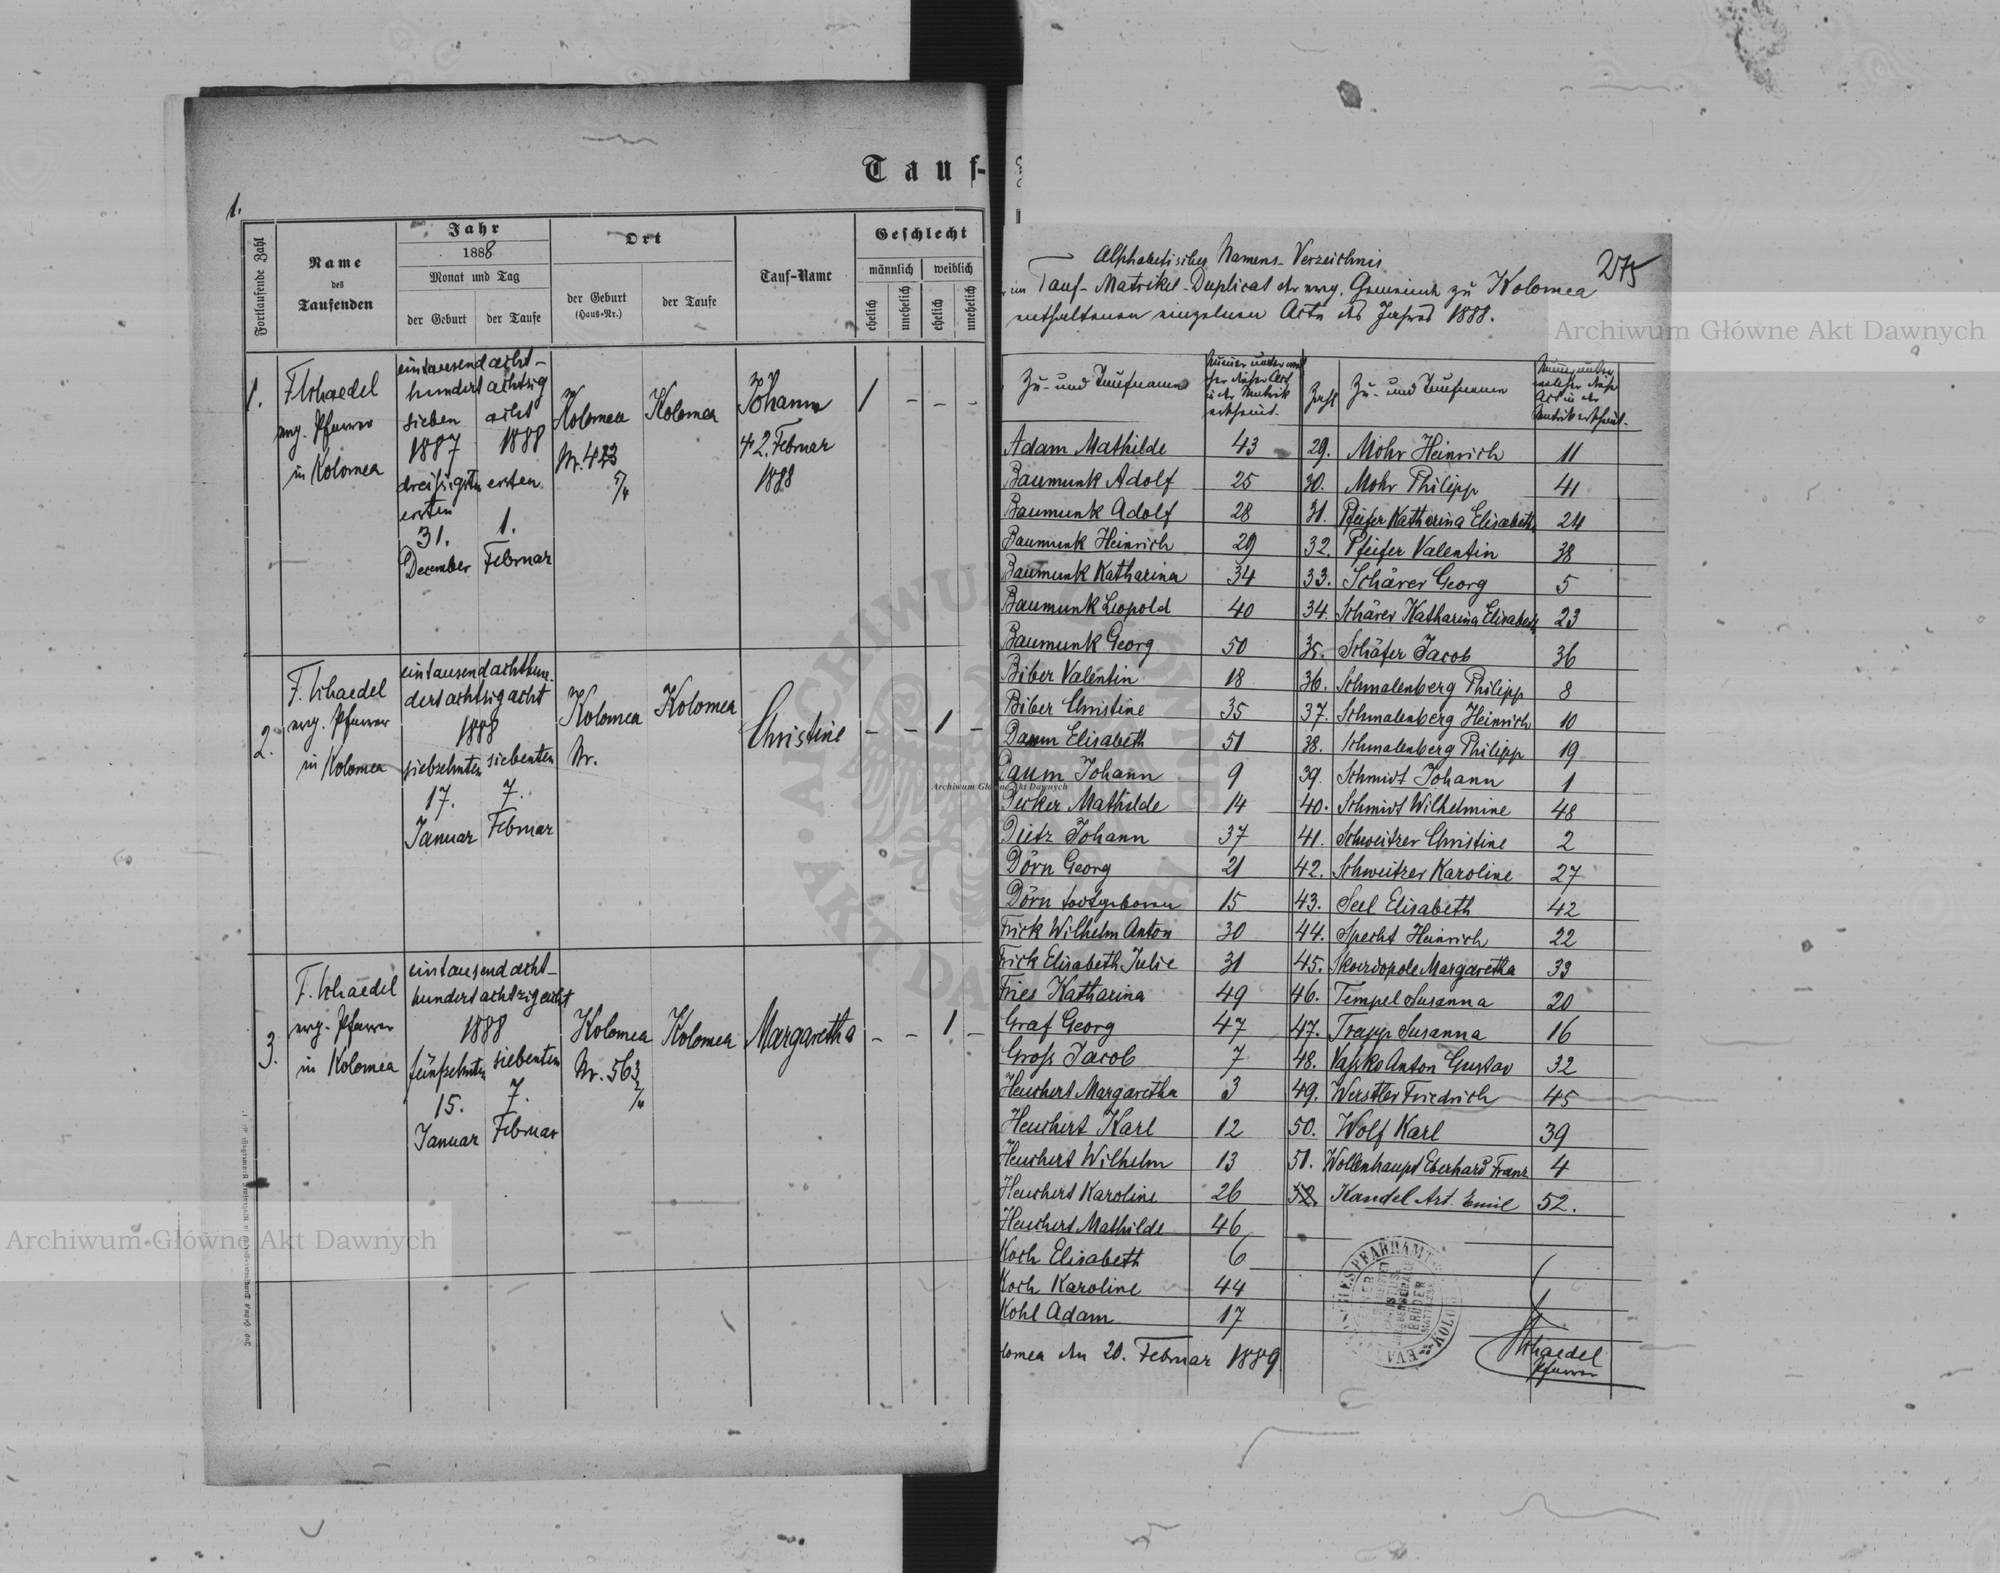 Tauf-
1.
Fortlaufende Zahl
Name
des
Taufenden
Jahr
1888
Monat und Tag
der Geburt
der Taufe
Ort
der Geburt
(Haus-Nr.)
der Taufe
Tauf-Name
Geschlecht
männlich
weiblich
ehelich
unehelich
ehelich
unehelich
1.
FSchaedel
evg. Pfarrer
in Kolomea
eintausend acht-
hundert achtzig
sieben acht
1887 1888
dreißigsten ersten
ersten
31. 1.
December Februar
Kolomea
Nr. 423
Kolomea
Johann
† 2. Februar
1888
1 - - -
2.
F. Schaedel
evg. Pfarrer
in Kolomea
eintausend achthun-
dert achtzig acht
1888
siebzehnten siebenten
17. 7.
Januar Februar
Kolomea
Nr.
Kolomea
Christine
- - 1 -
3.
F. Schaedel
evg. Pfarrer
in Kolomea
eintausend acht-
hundert achtzig acht
1888
fünfzehnten siebenten
15. 7.
Januar Februar
Kolomea
Nr. 563
Kolomea
Margaretha
- - 1 -
275
Alphabetisches Namens-Verzeichnis
im Tauf-Matrikel-Duplicat der evg. Gemeinde zu Kolomea
enthaltenen einzelnen Acte des Jahres 1888.
Zu- und Taufname
Adam Mathilde 43
Baumunk Adolf 25
Baumunk Adolf 28
Baumunk Heinrich 29
Baumunk Katharina 34
Baumunk Leopold 40
Baumunk Georg 50
Biber Valentin 18
Biber Christine 35
Daum Elisabeth 51
Daum Johann 9
Decker Mathilde 14
Dietz Johann 37
Dörn Georg 21
Dörn todtgeboren 15
Frick Wilhelm Anton 30
Frick Elisabeth Julie 31
Fries Katharina 49
Graf Georg 47
Groß Jacob 7
Heuchert Margaretha 3
Heuchert Karl 12
Heuchert Wilhelm 13
Heuchert Karoline 26
Heuchert Mathilde 46
Koch Elisabeth 6
Koch Karoline 44
Kohl Adam 17
Zahl
Zu- und Taufname
29. Mohr Heinrich 11
30. Mohr Philipp 41
31. Pfeifer Katharina Elisabeth 24
32. Pfeifer Valentin 38
33. Schärer Georg 5
34. Schärer Katharina Elisabeth 23
35. Schäfer Jacob 36
36. Schmalenberg Philipp 8
37. Schmalenberg Heinrich 10
38. Schmalenberg Philipp 19
39. Schmidt Johann 1
40. Schmidt Wilhelmine 48
41. Schweitzer Christine 2
42. Schweitzer Karoline 27
43. Seel Elisabeth 42
44. Specht Heinrich 22
45. Skowdopole Margaretha 33
46. Tempel Susanna 20
47. Trapp Susanna 16
48. Vasko Anton Gustav 32
49. Werstler Friedrich 45
50. Wolf Karl 39
51. Wollenhaupt Eberhard Franz 4
52. Kandel Art. Emil 52.
lomea den 20. Februar 1889.
FSchaedel
Pfarrer
Archiwum Główne Akt Dawnych
Archiwum Główne Akt Dawnych
Archiwum Główne Akt Dawnych